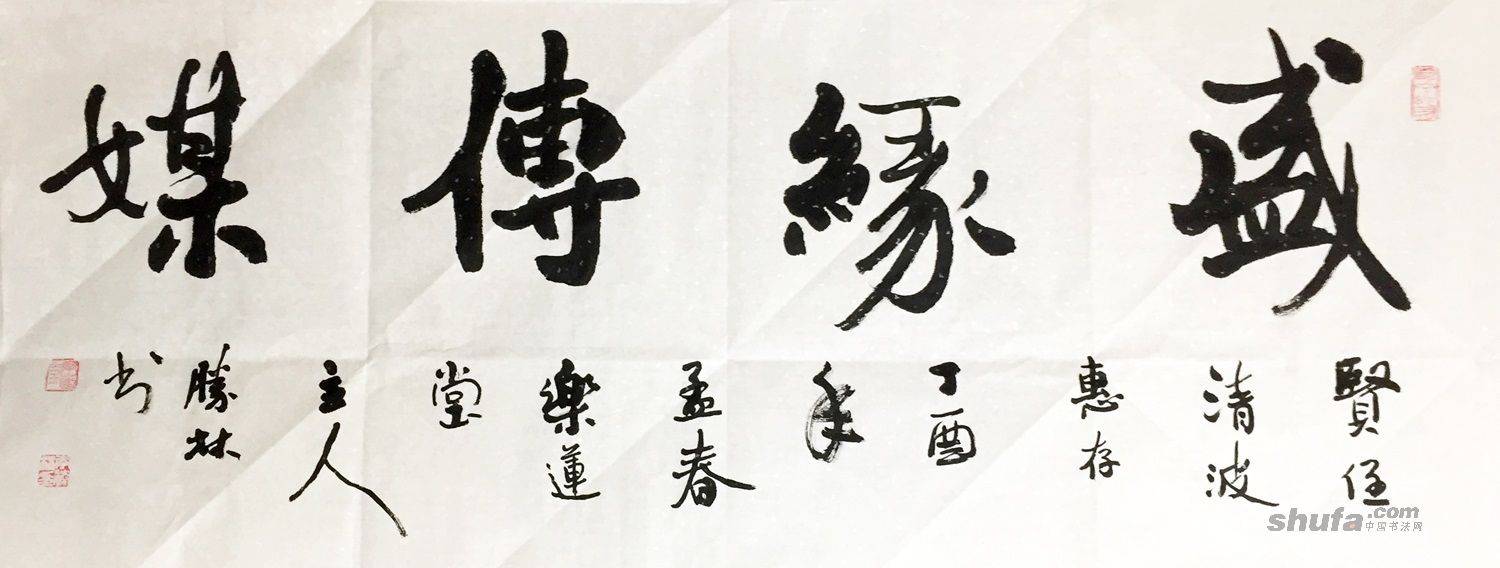 盛緣傳媒
賢侄
清波
惠存
丁酉
年
孟春
樂蓮
堂
主人
勝林
书
shufa.com
中国书法网